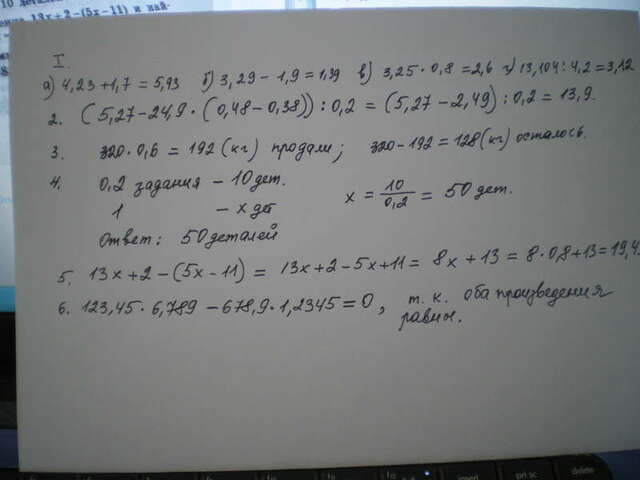 10
13x+2-(5x-11) и най-
I.
а) 4,23+1,7 = 5,93 б) 3,29 - 1,9 = 1,39 в) 3,25 · 0,8 = 2,6 г) 13,104 : 4,2 = 3,12
2. (5,27-24,9 · (0,48-0,38)) : 0,2 = (5,27-2,49) : 0,2 = 13,9.
3. 320 · 0,6 = 192 (кг) продали; 320-192 = 128 (кг) осталось.
4. 0,2 задания - 10 дет. x = 10/0,2 = 50 дет.
1 - x дет
Ответ: 50 деталей
5. 13x+2-(5x-11) = 13x+2-5x+11 = 8x+13 = 8·0,8+13=19,4
6. 123,45 · 6,789 - 678,9 · 1,2345 = 0, т. к. оба произведения
равны.
prt sc
delete